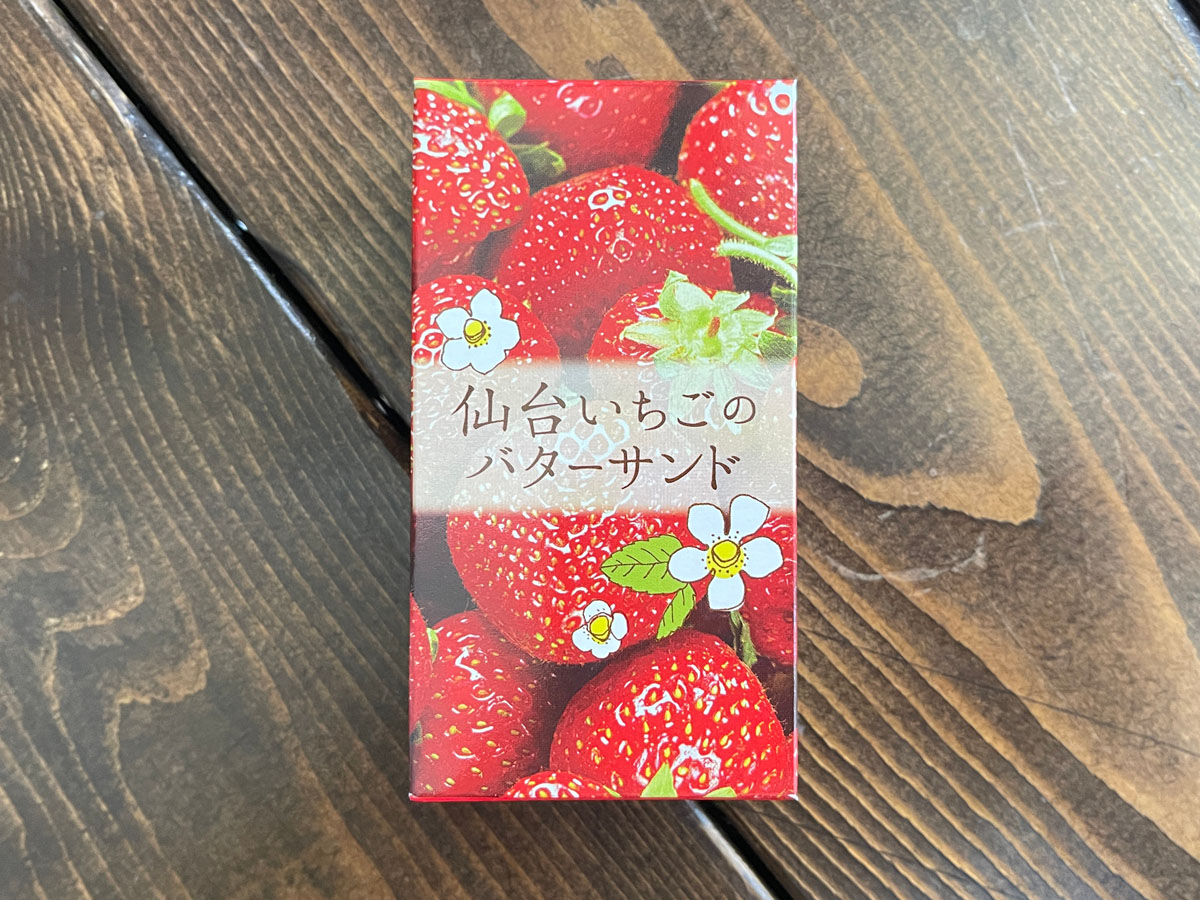 仙台いちごの
バターサンド